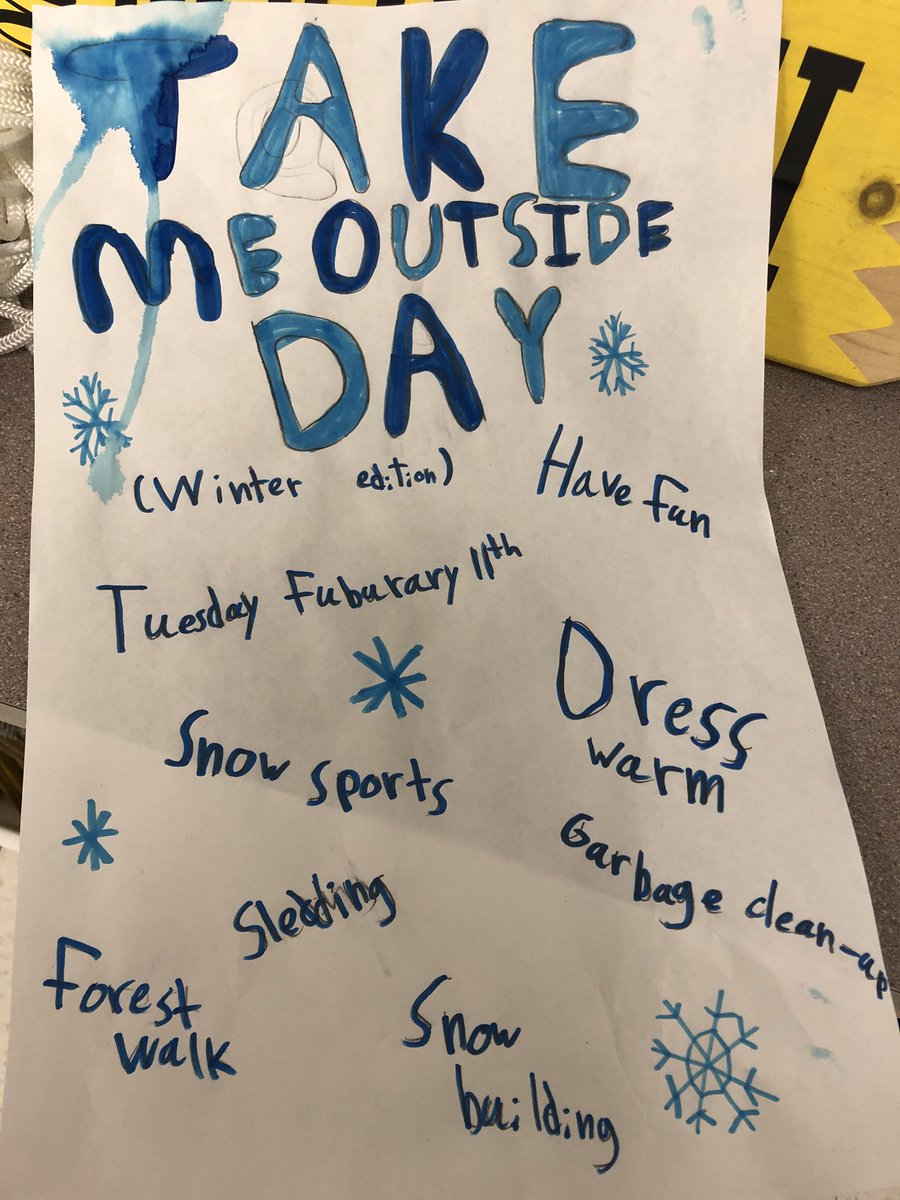 TAKE
ME OUTSIDE
DAY
(Winter edition)
Have fun
Tuesday Fuburary 11th
Dress
warm
Snow sports
Garbage clean-up
Sledding
Forest
walk
Snow
building